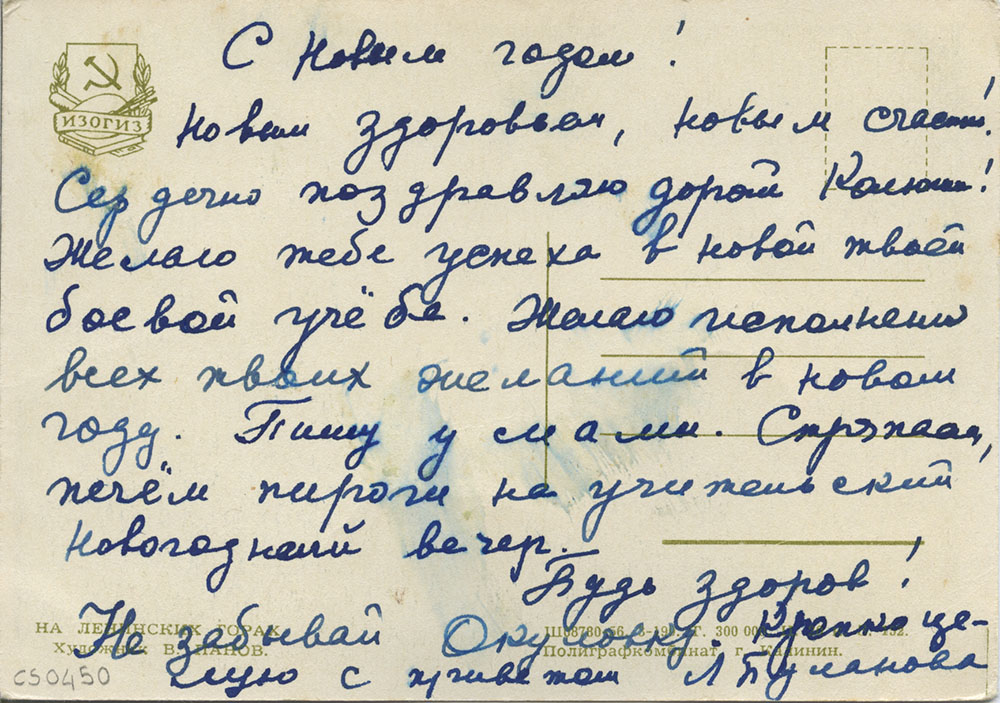 С Новым годом!
ИЗОГИЗ
Новым здоровьем, новым счастьем!
Сердечно поздравляю дорогой Колюши!
Желаю тебе успеха в новой твоей
боевой учёбе. Желаю исполнения
всех твоих желаний в новом
году. Пишу у мамы. Стряпаем,
печём пироги на учительский
Новогодний вечер.
Будь здоров!
Не забывай Окуловку. Крепко це-
лую с приветом Л Туманова
НА ЛЕНИНСКИХ ГОРАХ
Художник В. ПАНОВ.
Полиграфкомбинат, г. Калинин.
CS0450